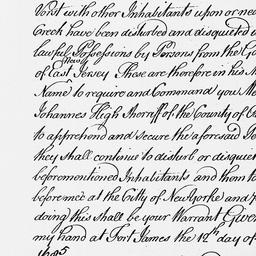 Vorst with other Inhabitants upon or nea
Creek have been disturbed and disquieted
lawfull Possessions by Persons from the G
of East New Jersey These are therefore in his M
Name to require and Command you M
Johannes High Sherriff of the County of
to apprehend and secure the aforesaid
they shall continue to disturb or disquiet
beforementioned Inhabitants and them to
before me at the Citty of New Yorke and
doing this shall be your Warrant Given
my hand at Fort James the 12th day of
1685